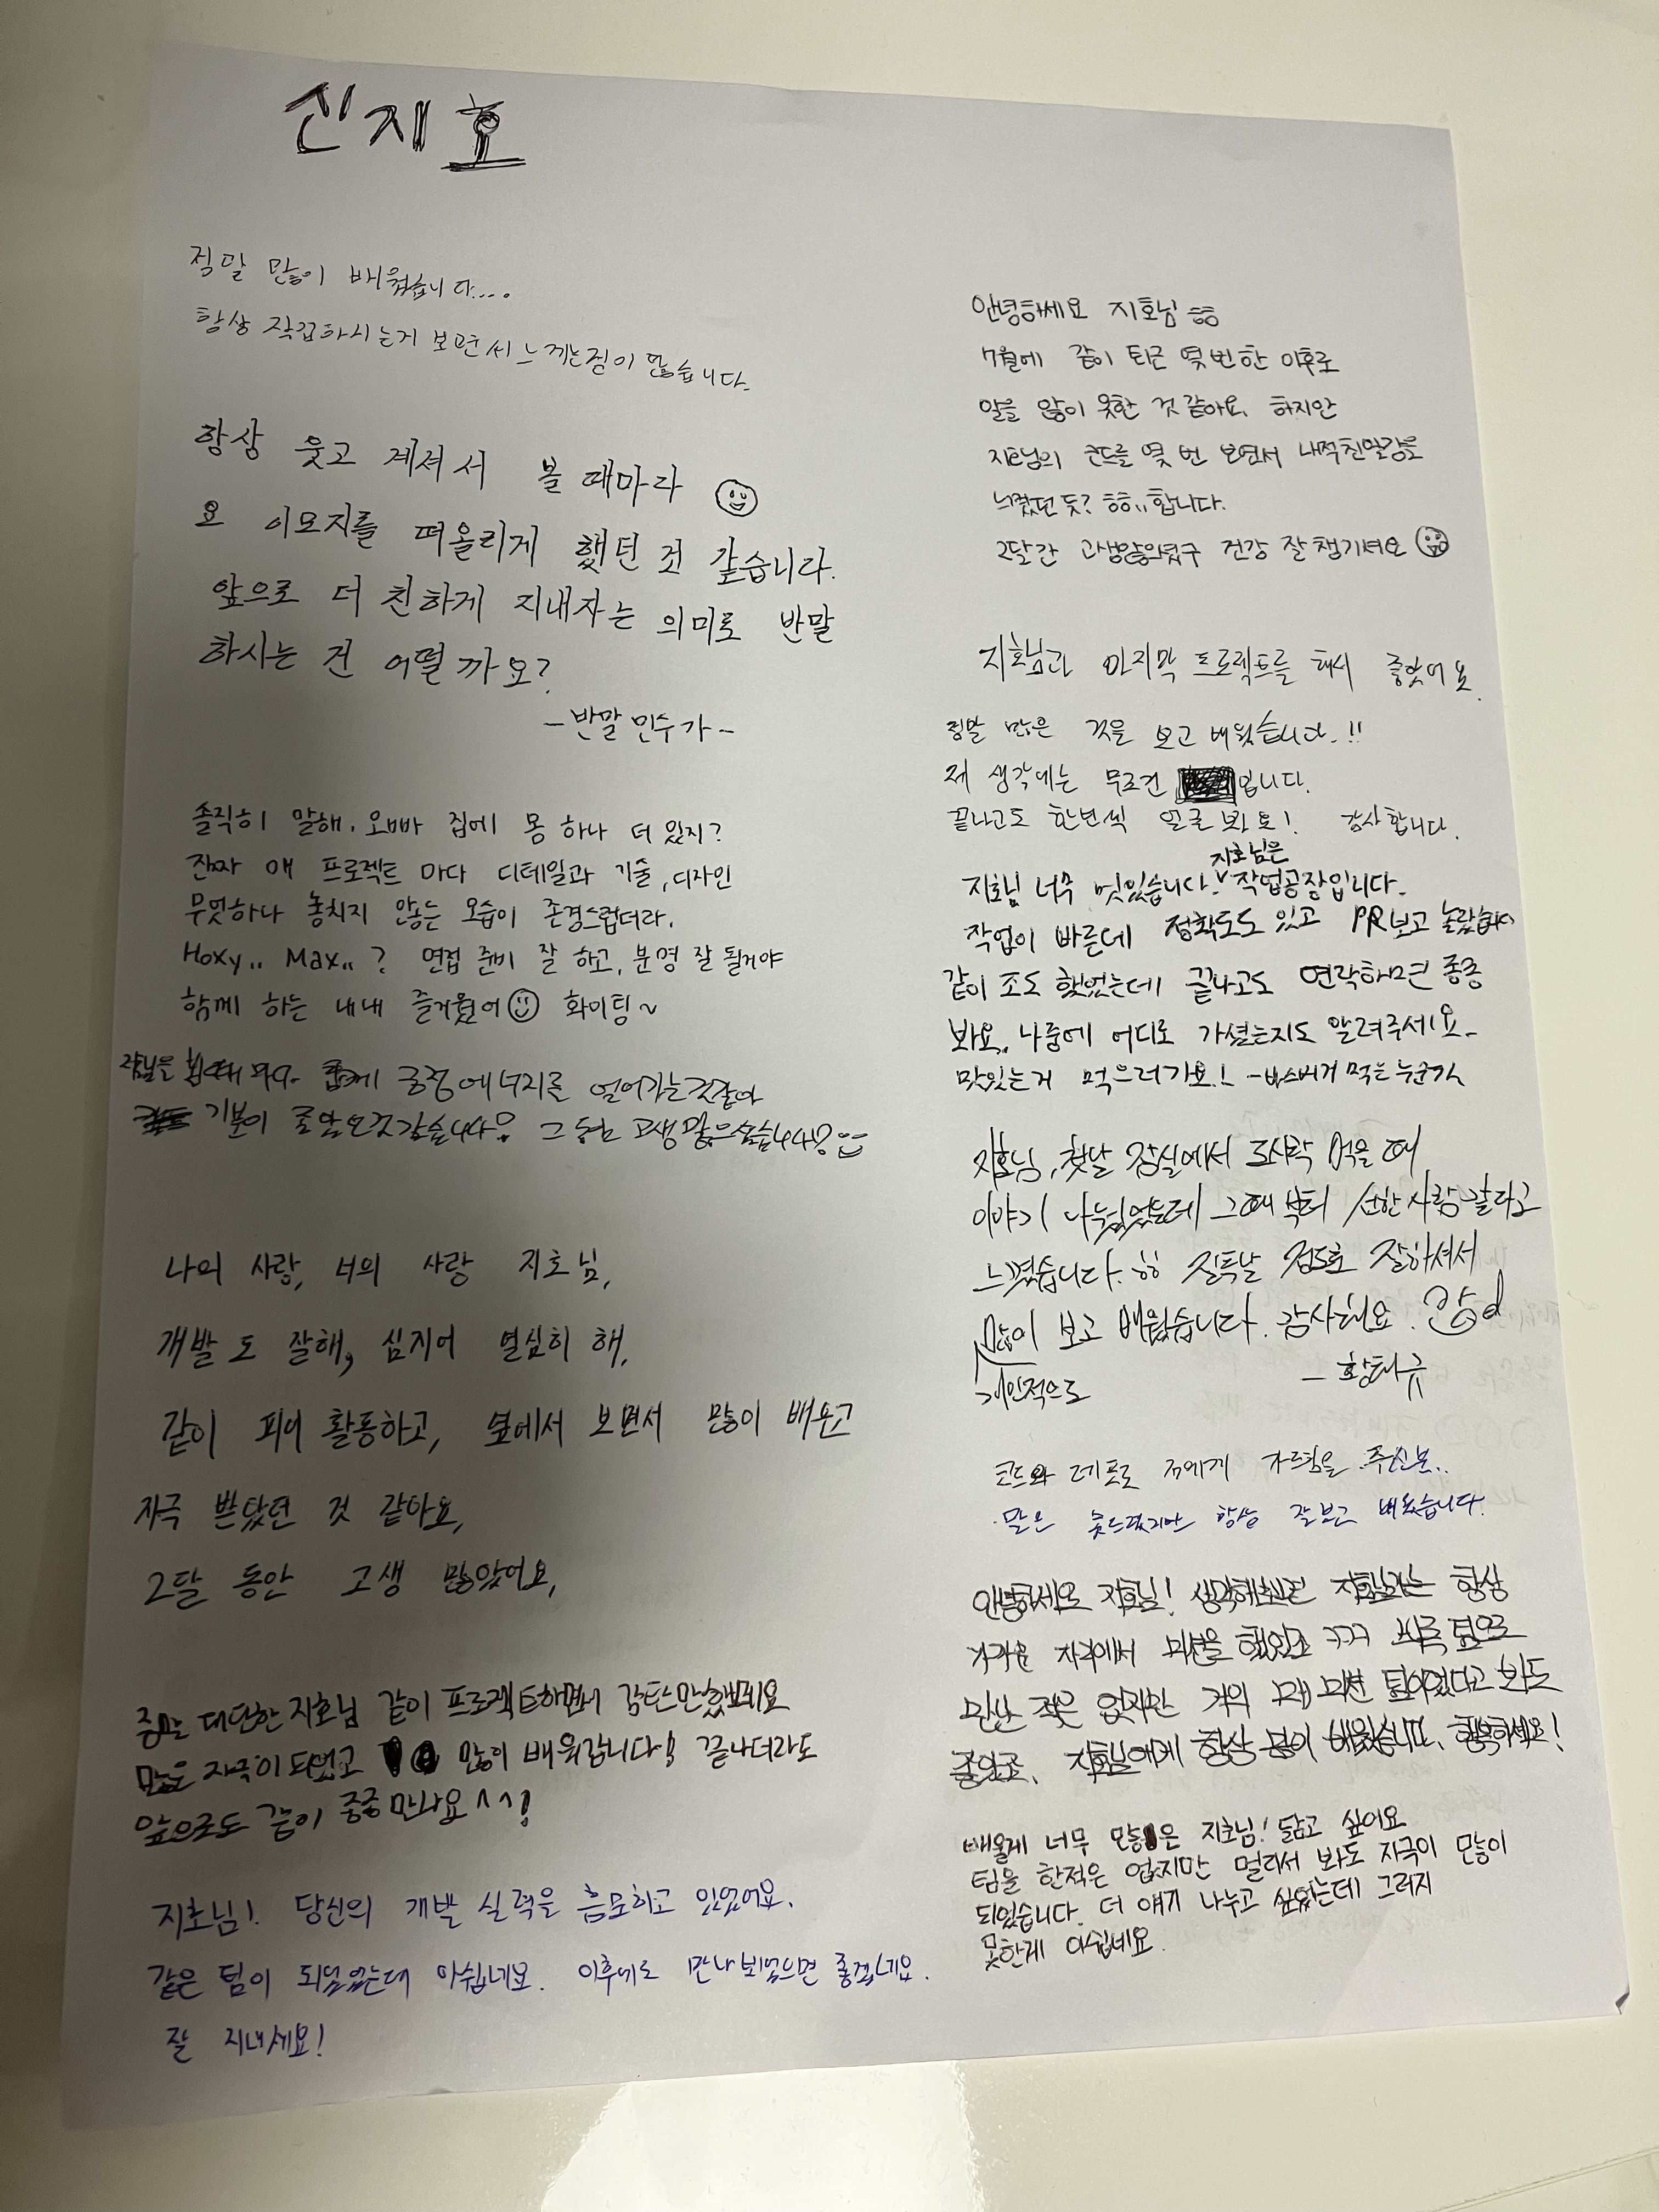 신지호
정말 많이 배웠습니다....
항상 작업하시는거 보면서 느끼는점이 많습니다.
항상 웃고 계셔서 볼 때마다
요 이모지를 떠올리게 했던 것 같습니다.
앞으로 더 친하게 지내자는 의미로 반말
하시는 건 어떨까요?
-반말 민수가-
솔직히 말해. 오빠 집에 몸 하나 더 있지?
진짜 매 프로젝트 마다 디테일과 기술, 디자인
무엇하나 놓치지 않는 모습이 존경스럽더라.
Hoxy.. Max.. ? 면접 준비 잘 하고, 분명 잘 될거야
함께 하는 내내 즐거웠어 화이팅~
긍정에너지를 얻어가는것같아
기분이 그동안 고생 많으셨습니다
나의 사랑, 너의 사랑 지호님,
개발도 잘해, 심지어 열심히 해,
같이 피어 활동하고, 옆에서 보면서 많이 배운고
자극 받았던 것 같아요,
2달 동안 고생 많았어요,
정말 대단한 지호님 같이 프로젝트하면서 감탄만했네요
많은 자극이 되었고 많이 배워갑니다! 끝나더라도
앞으로도 같이 종종 만나요^^!
지호님! 당신의 개발 실력을 흠모하고 있었어요.
같은 팀이 되었었는데 아쉽네요. 이후에도 만나뵈었으면 좋겠네요.
잘 지내세요!
안녕하세요 지호님 ㅎㅎ
7월에 같이 퇴근 몇 번 한 이후로
말을 많이 못한 것 같아요. 하지만
지호님의 코드를 몇 번 보면서 내적친밀감을
느꼈던 듯? ㅎㅎ.. 합니다.
2달간 고생많으셨구 건강 잘 챙기셔요
지호님과 마지막 프로젝트를 해서 좋았어요.
정말 많은 것을 보고 배웠습니다.!!
제 생각에는 무조건 입니다.
끝나고도 한번씩 얼굴 봐요! 감사합니다.
지호님 너무 멋있습니다. 지호님은 작업공장입니다.
작업이 빠른데 정확도도 있고 PR보고 놀랐습니다
같이 조도 했었는데 끝나고도 연락하면 종종
봐요. 나중에 어디로 가셨는지도 알려주세요.
맛있는거 먹으러가요! -버스버거 먹는 누군가
지호님, 첫날 잠실에서 도시락 먹을 때
이야기 나눴었는데 그때부터 선한 사람같다고
느꼈습니다. ㅎㅎ 질투날 정도로 잘하셔서
개인적으로 많이 보고 배웠습니다. 감사해요.
- 황태규
코드와 데포로 저에게 가르침을 주신분..
말은 못드렸지만 항상 잘보고 배웠습니다.
안녕하세요 지호님! 생각해보면 지호님과는 항상
가까운 자리에서 미션을 했었고 ㅋㅋㅋ 비록 팀으로
만난 적은 없지만 거의 미션 팀이었다고 봐도
지호님에게 항상 많이 배웠습니다. 행복하세요!
배울게 너무 많은 지호님! 닮고 싶어요
팀을 한적은 없지만 멀리서 봐도 자극이 많이
되었습니다. 더 얘기 나누고 싶었는데 그러지
못한게 아쉽네요.